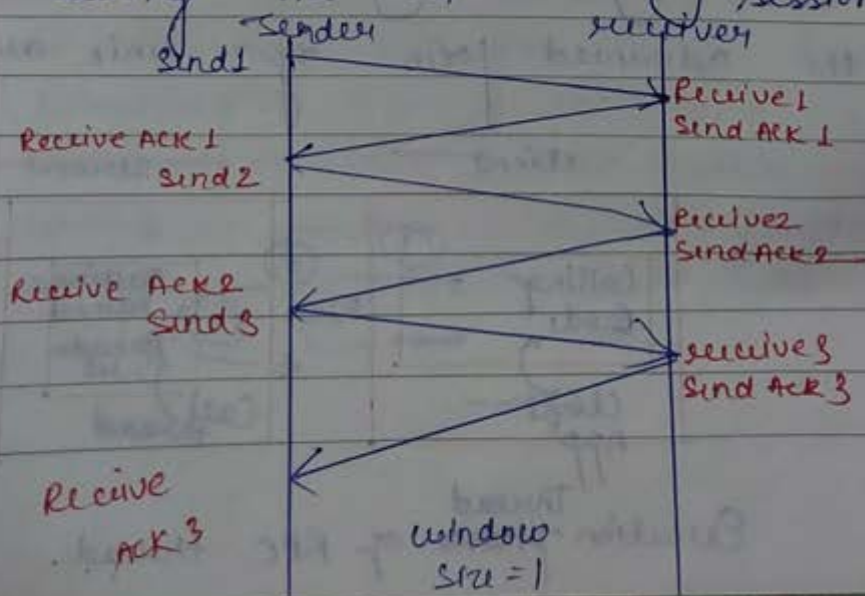 session
Sender
receiver
Send1
Receive 1
Send ACK 1
Receive ACK 1
Send2
Receive2
Send ACK 2
Receive ACK2
Send3
receive3
Send ACK 3
Receive
ACK 3
window
size = 1